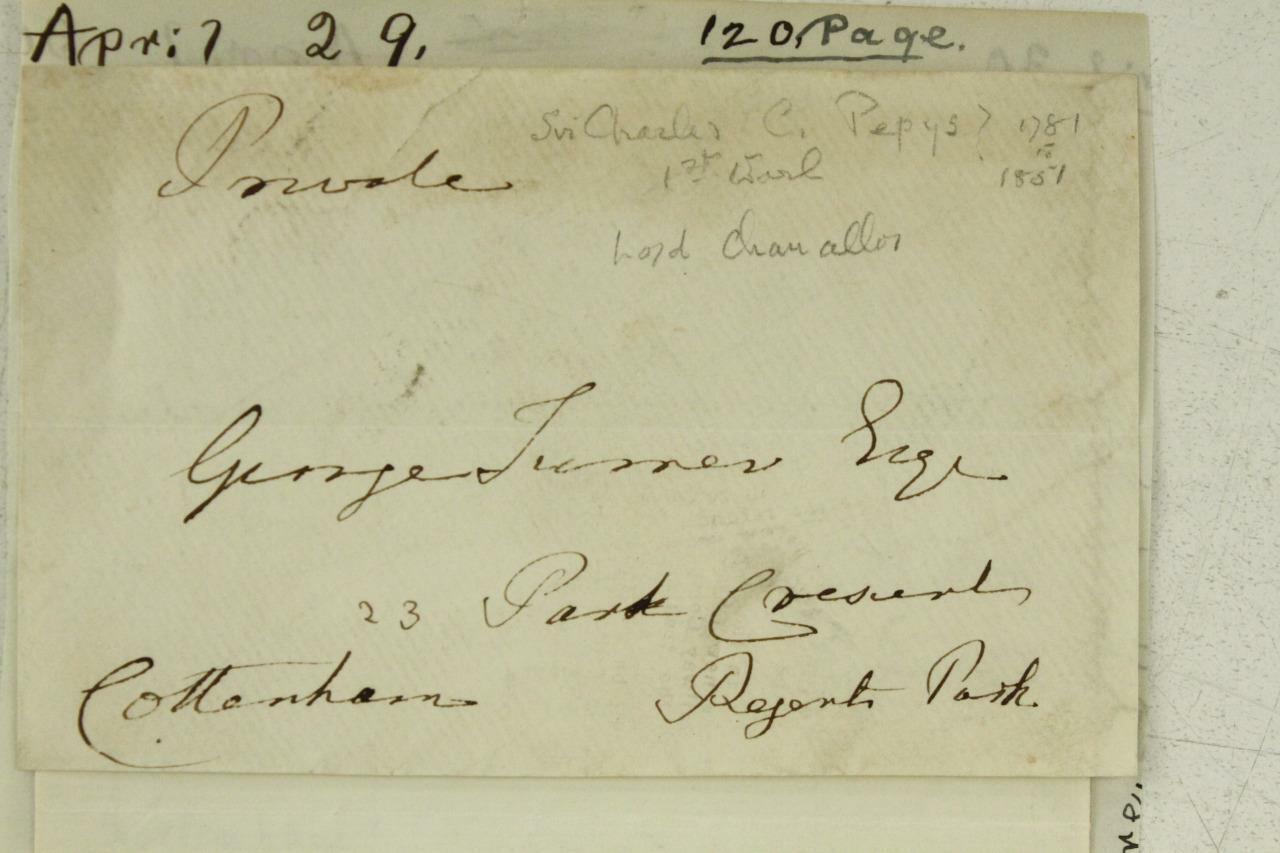 April 29. 120, Page.
Private
Sir Charles C. Pepys? 1781
1st Earl to 1851
Lord Chancellor
George Turner Esqr
23 Park Crescent
Cottenham Regents Park